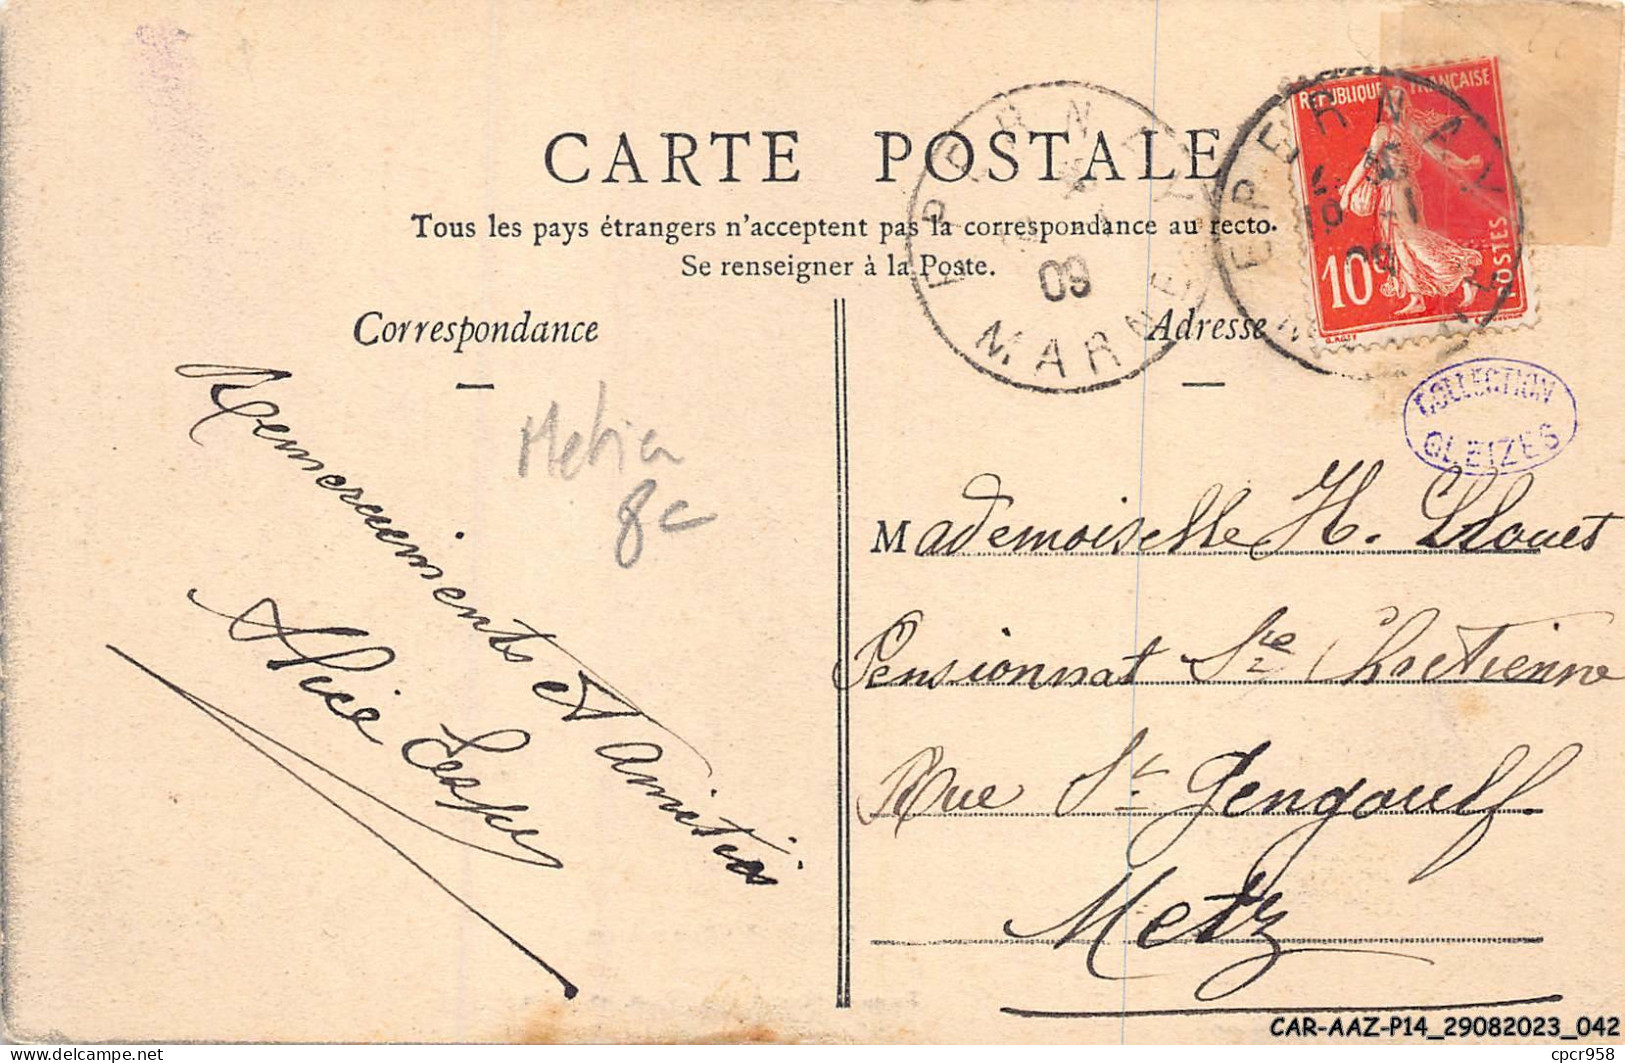 RÉPUBLIQUE FRANÇAISE
10c
POSTES
EPERNAY
09
MARNE
EPERNAY
09
CARTE POSTALE
Tous les pays étrangers n'acceptent pas la correspondance au recto.
Se renseigner à la Poste.
Correspondance
Adresse
COLLECTION
GLEIZES
8e
Remerciements et amitiés
Alice
Mademoiselle H.
Pensionnat Ste Chrétienne
Rue St Gengoulf.
Metz
CAR-AAZ-P14_29082023_042
cpcr958